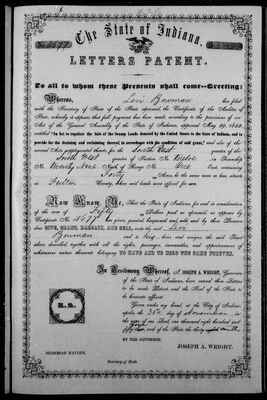 The State of Indiana,
LETTERS PATENT.
To all to whom these Presents shall come--Greeting:
Whereas, Levi Bowman has filed
with the Secretary of State of the State aforesaid the Certificate of the Auditor of
State, whereby it appears that full payment has been made according to the provisions of an
Act of the General Assembly of the State of Indiana, approved May 29, 1852,
entitled "An Act to regulate the Sale of the Swamp Lands donated by the United States to the State of Indiana, and to
provide for the draining and reclaiming thereof, in accordance with the condition of said grant," and also of the
several Acts supplemental thereto, for the North East quarter of the
South West quarter of Section No. Twelve in Township
No. Twenty Nine North of Range No. One East containing
Forty Acres, be the same more or less, situate
in Fulton County, when said lands were offered for sale.
Now Know Ye, That the State of Indiana, for and in consideration
of the sum of Fifty Dollars, paid as aforesaid, as appears by
Certificate No. 1677 has given, granted, bargained and sold, and by these Presents
does GIVE, GRANT, BARGAIN, AND SELL, unto the said Levi
Bowman and to heirs and assigns, the said Tract
above described, together with all the rights, privileges, immunities, and appurtenances of
whatsoever nature thereunto belonging, TO HAVE AND TO HOLD THE SAME FOREVER.
In Testimony Whereof, I, JOSEPH A. WRIGHT, Governor
of the State of Indiana, have caused these Letters
to be made Patent, and the Seal of the State to
be hereunto affixed.
Given under my hand, at the City of Indian-
apolis, the day of November in
the year of our Lord, one thousand eight hundred and
Fifty and of the State the thirty
BY THE GOVERNOR:
JOSEPH A. WRIGHT.
Secretary of State.